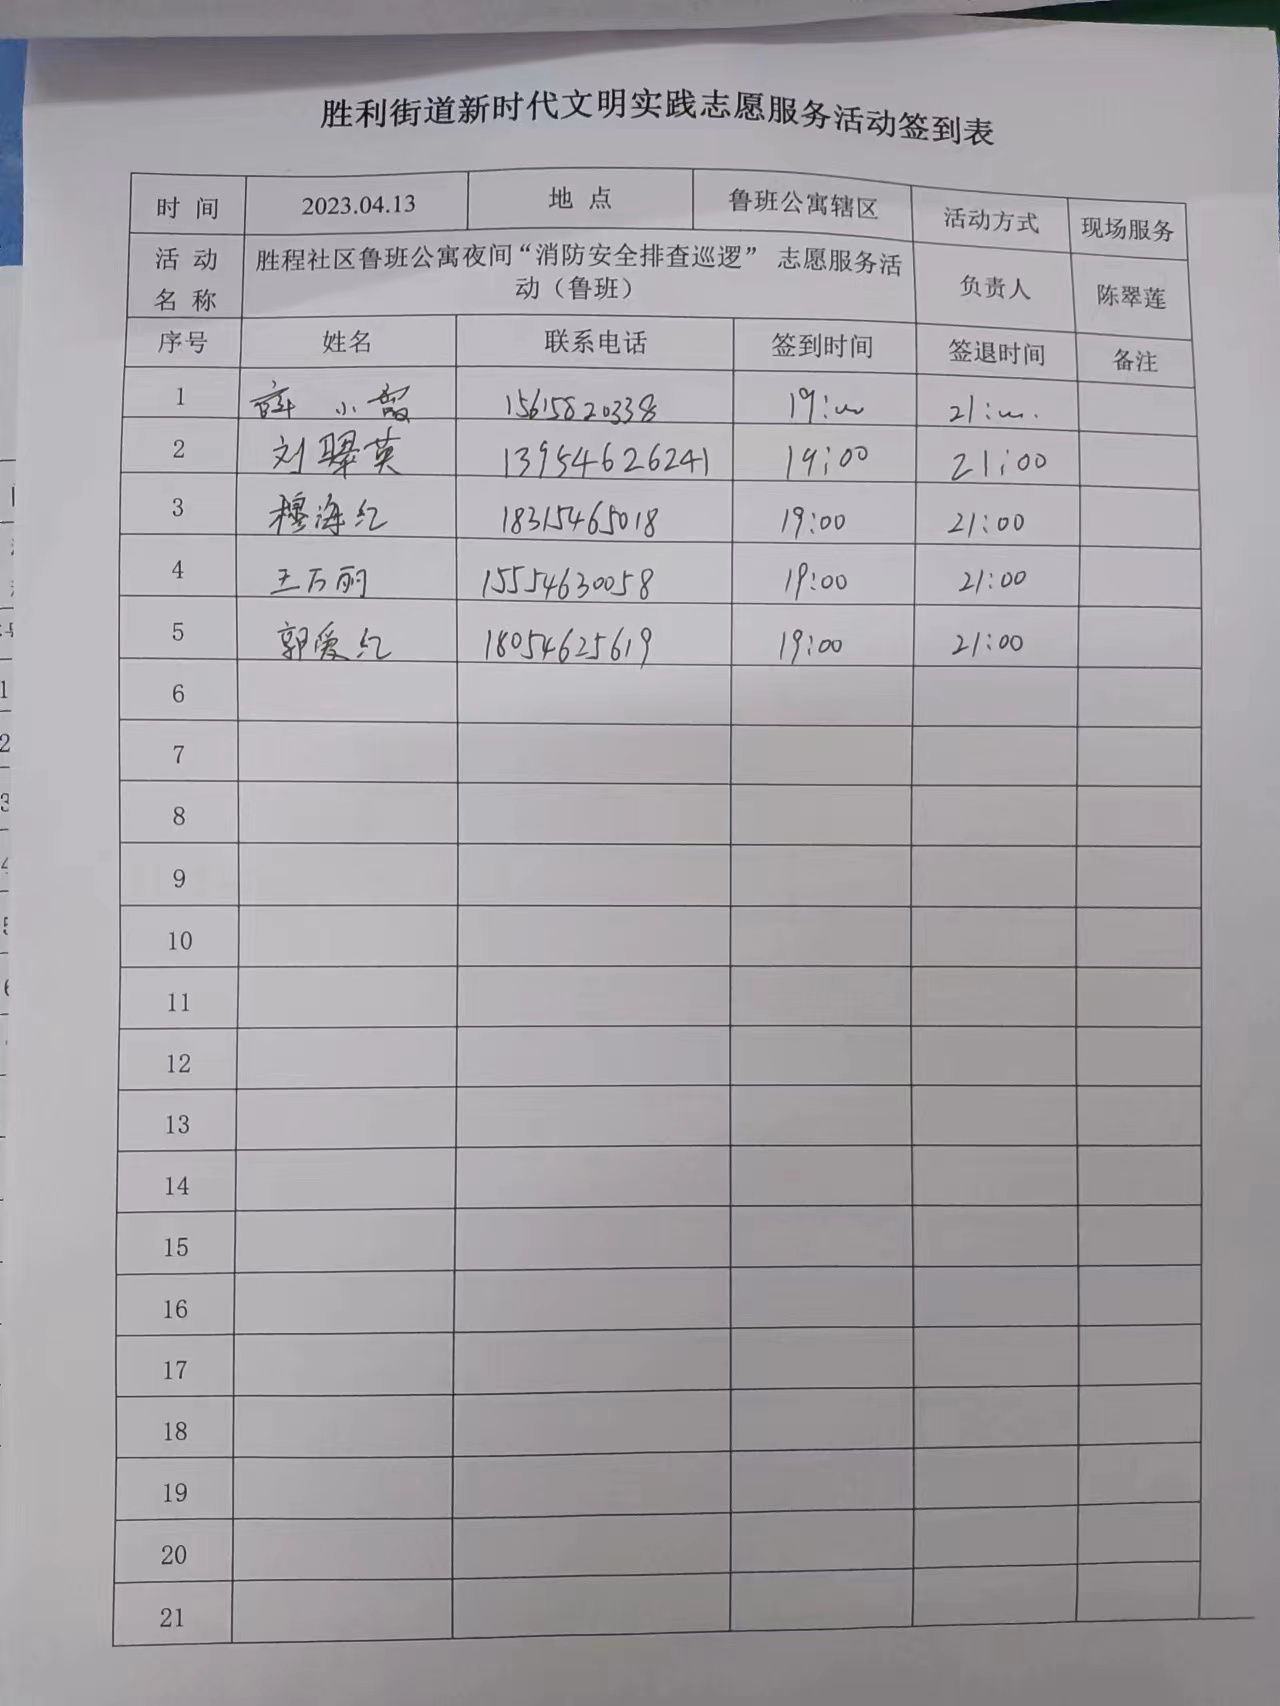 胜利街道新时代文明实践志愿服务活动签到表
时 间 2023.04.13 地 点 鲁班公寓辖区 活动方式 现场服务
活 动 名 称 胜程社区鲁班公寓夜间“消防安全排查巡逻” 志愿服务活动（鲁班） 负责人 陈翠莲
序号 姓名 联系电话 签到时间 签退时间 备注
1 薛小霞 15615820338 19:00 21:00.
2 刘翠英 13954626241 19:00 21:00
3 穆海红 18315465018 19:00 21:00
4 王万丽 15554630058 19:00 21:00
5 郭爱红 18054625619 19:00 21:00
6
7
8
9
10
11
12
13
14
15
16
17
18
19
20
21